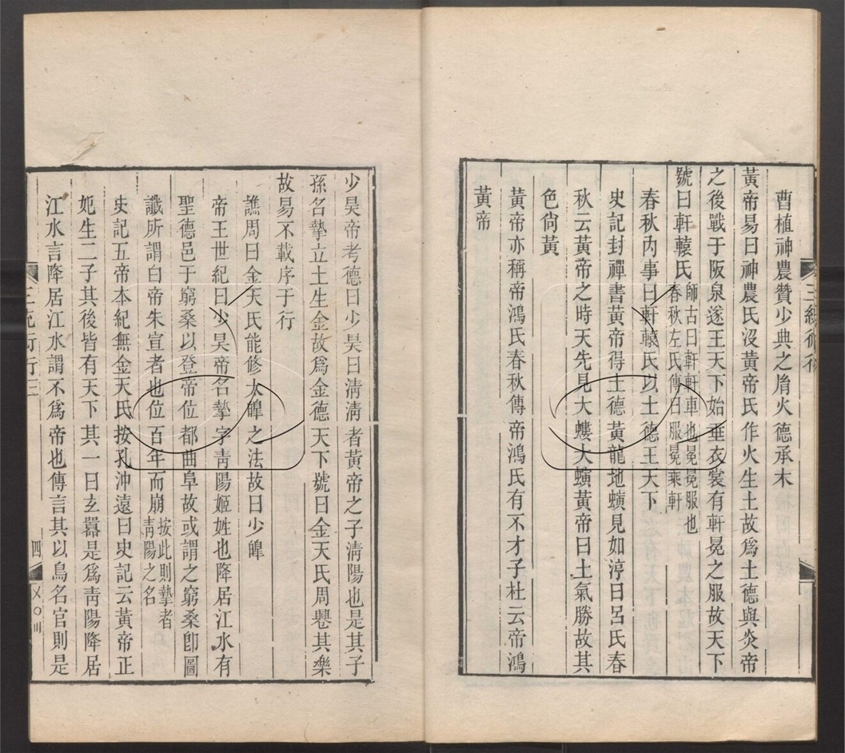 曹植神農贊少典之胤火德承木
黃帝易曰神農氏沒黃帝氏作火生土故爲土德與炎帝
之後戰于阪泉遂王天下始垂衣裳有軒冕之服故天下
號曰軒轅氏師古曰軒軒車也冕冕服也春秋左氏傳曰服冕乘軒
春秋內事曰軒轅氏以土德王天下
史記封禪書黃帝得土德黃龍地螾見如淳曰呂氏春
秋云黃帝之時天先見大螻大螾黃帝曰土氣勝故其
色尙黃
黃帝亦稱帝鴻氏春秋傳帝鴻氏有不才子杜云帝鴻
黃帝
少昊帝考德曰少昊曰淸淸者黃帝之子淸陽也是其子
孫名摯立土生金故爲金德天下號曰金天氏周䙴其樂
故易不載序于行
譙周曰金天氏能修太皥之法故曰少皥
帝王世紀曰少昊帝名摯字靑陽姬姓也降居江水有
聖德邑于窮桑以登帝位都曲阜故或謂之窮桑卽圖
讖所謂白帝朱宣者也位百年而崩按此則摯者靑陽之名
史記五帝本紀無金天氏按孔沖遠曰史記云黃帝正
妃生二子其後皆有天下其一曰玄囂是爲靑陽降居
江水言降居江水謂不爲帝也傳言其以鳥名官則是
三統術衍三
四